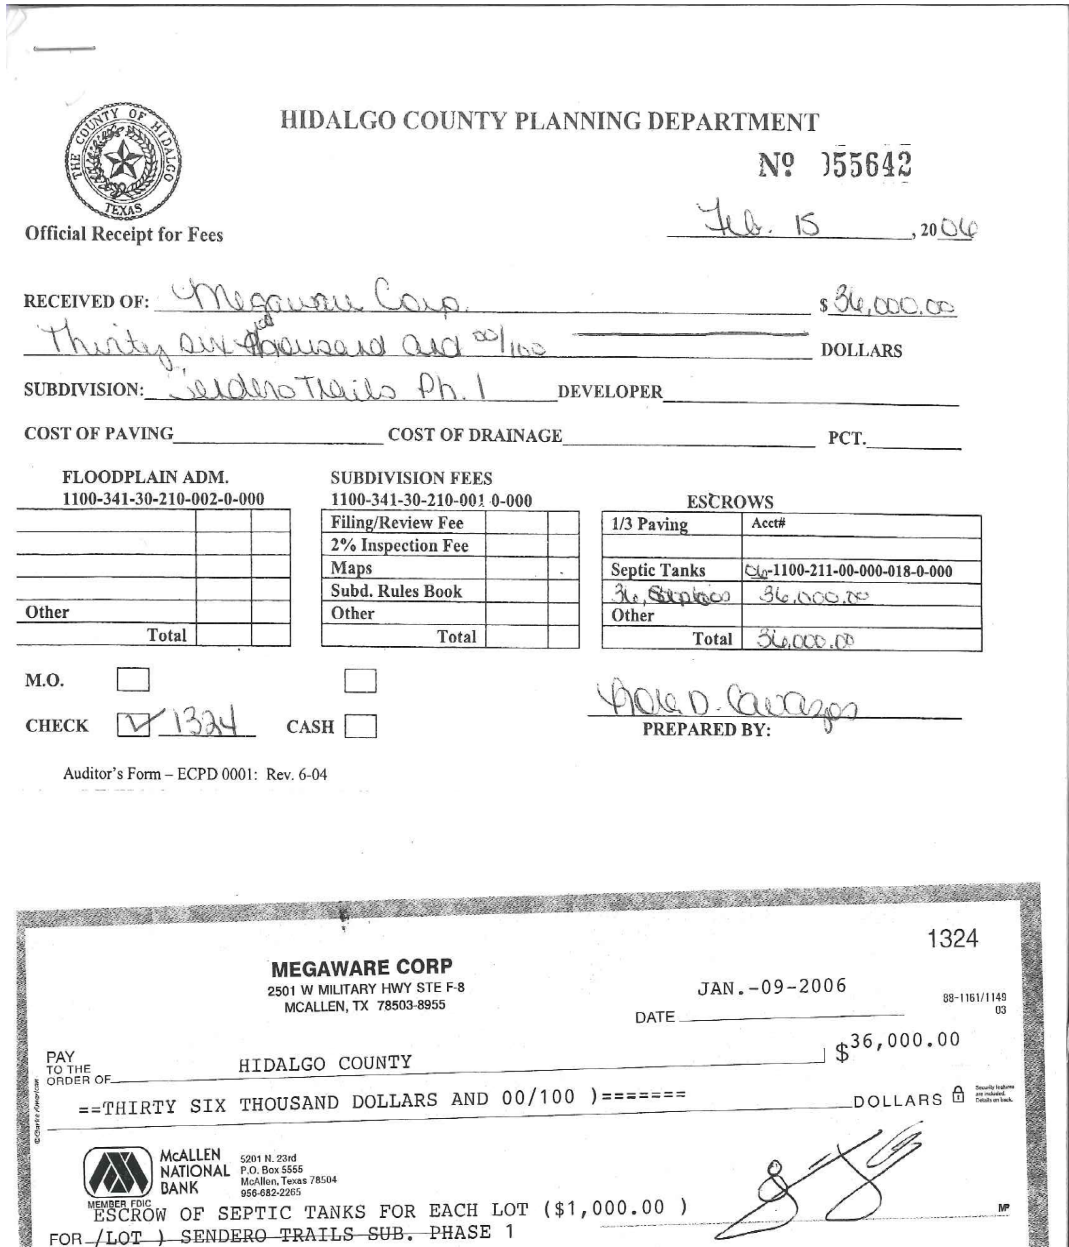 THE COUNTY OF HIDALGO
TEXAS
HIDALGO COUNTY PLANNING DEPARTMENT
Nº 055642
Official Receipt for Fees
Feb. 15, 2006
RECEIVED OF: Megaware Corp. $ 36,000.00
Thirty six thousand and 00/100 DOLLARS
SUBDIVISION: Sendero Trails Ph. 1 DEVELOPER
COST OF PAVING COST OF DRAINAGE PCT.
FLOODPLAIN ADM. SUBDIVISION FEES
1100-341-30-210-002-0-000 1100-341-30-210-001 0-000 ESCROWS
Filing/Review Fee 1/3 Paving Acct#
2% Inspection Fee
Maps Septic Tanks 06-1100-211-00-000-018-0-000
Subd. Rules Book 36, 36,000.00
Other Other Other
Total Total Total 36,000.00
M.O.
CHECK 1324 CASH D. Cavazos
PREPARED BY:
Auditor's Form – ECPD 0001: Rev. 6-04
1324
MEGAWARE CORP
2501 W MILITARY HWY STE F-8
MCALLEN, TX 78503-8955
JAN.-09-2006
DATE
88-1161/1149
03
PAY
TO THE
ORDER OF HIDALGO COUNTY $36,000.00
==THIRTY SIX THOUSAND DOLLARS AND 00/100 )======= DOLLARS
Security features
are included.
Details on back.
© Clarke American
McALLEN
NATIONAL
BANK
MEMBER FDIC
5201 N. 23rd
P.O. Box 5555
McAllen, Texas 78504
956-682-2265
ESCROW OF SEPTIC TANKS FOR EACH LOT ($1,000.00 )
MP
FOR /LOT ) SENDERO TRAILS SUB. PHASE 1